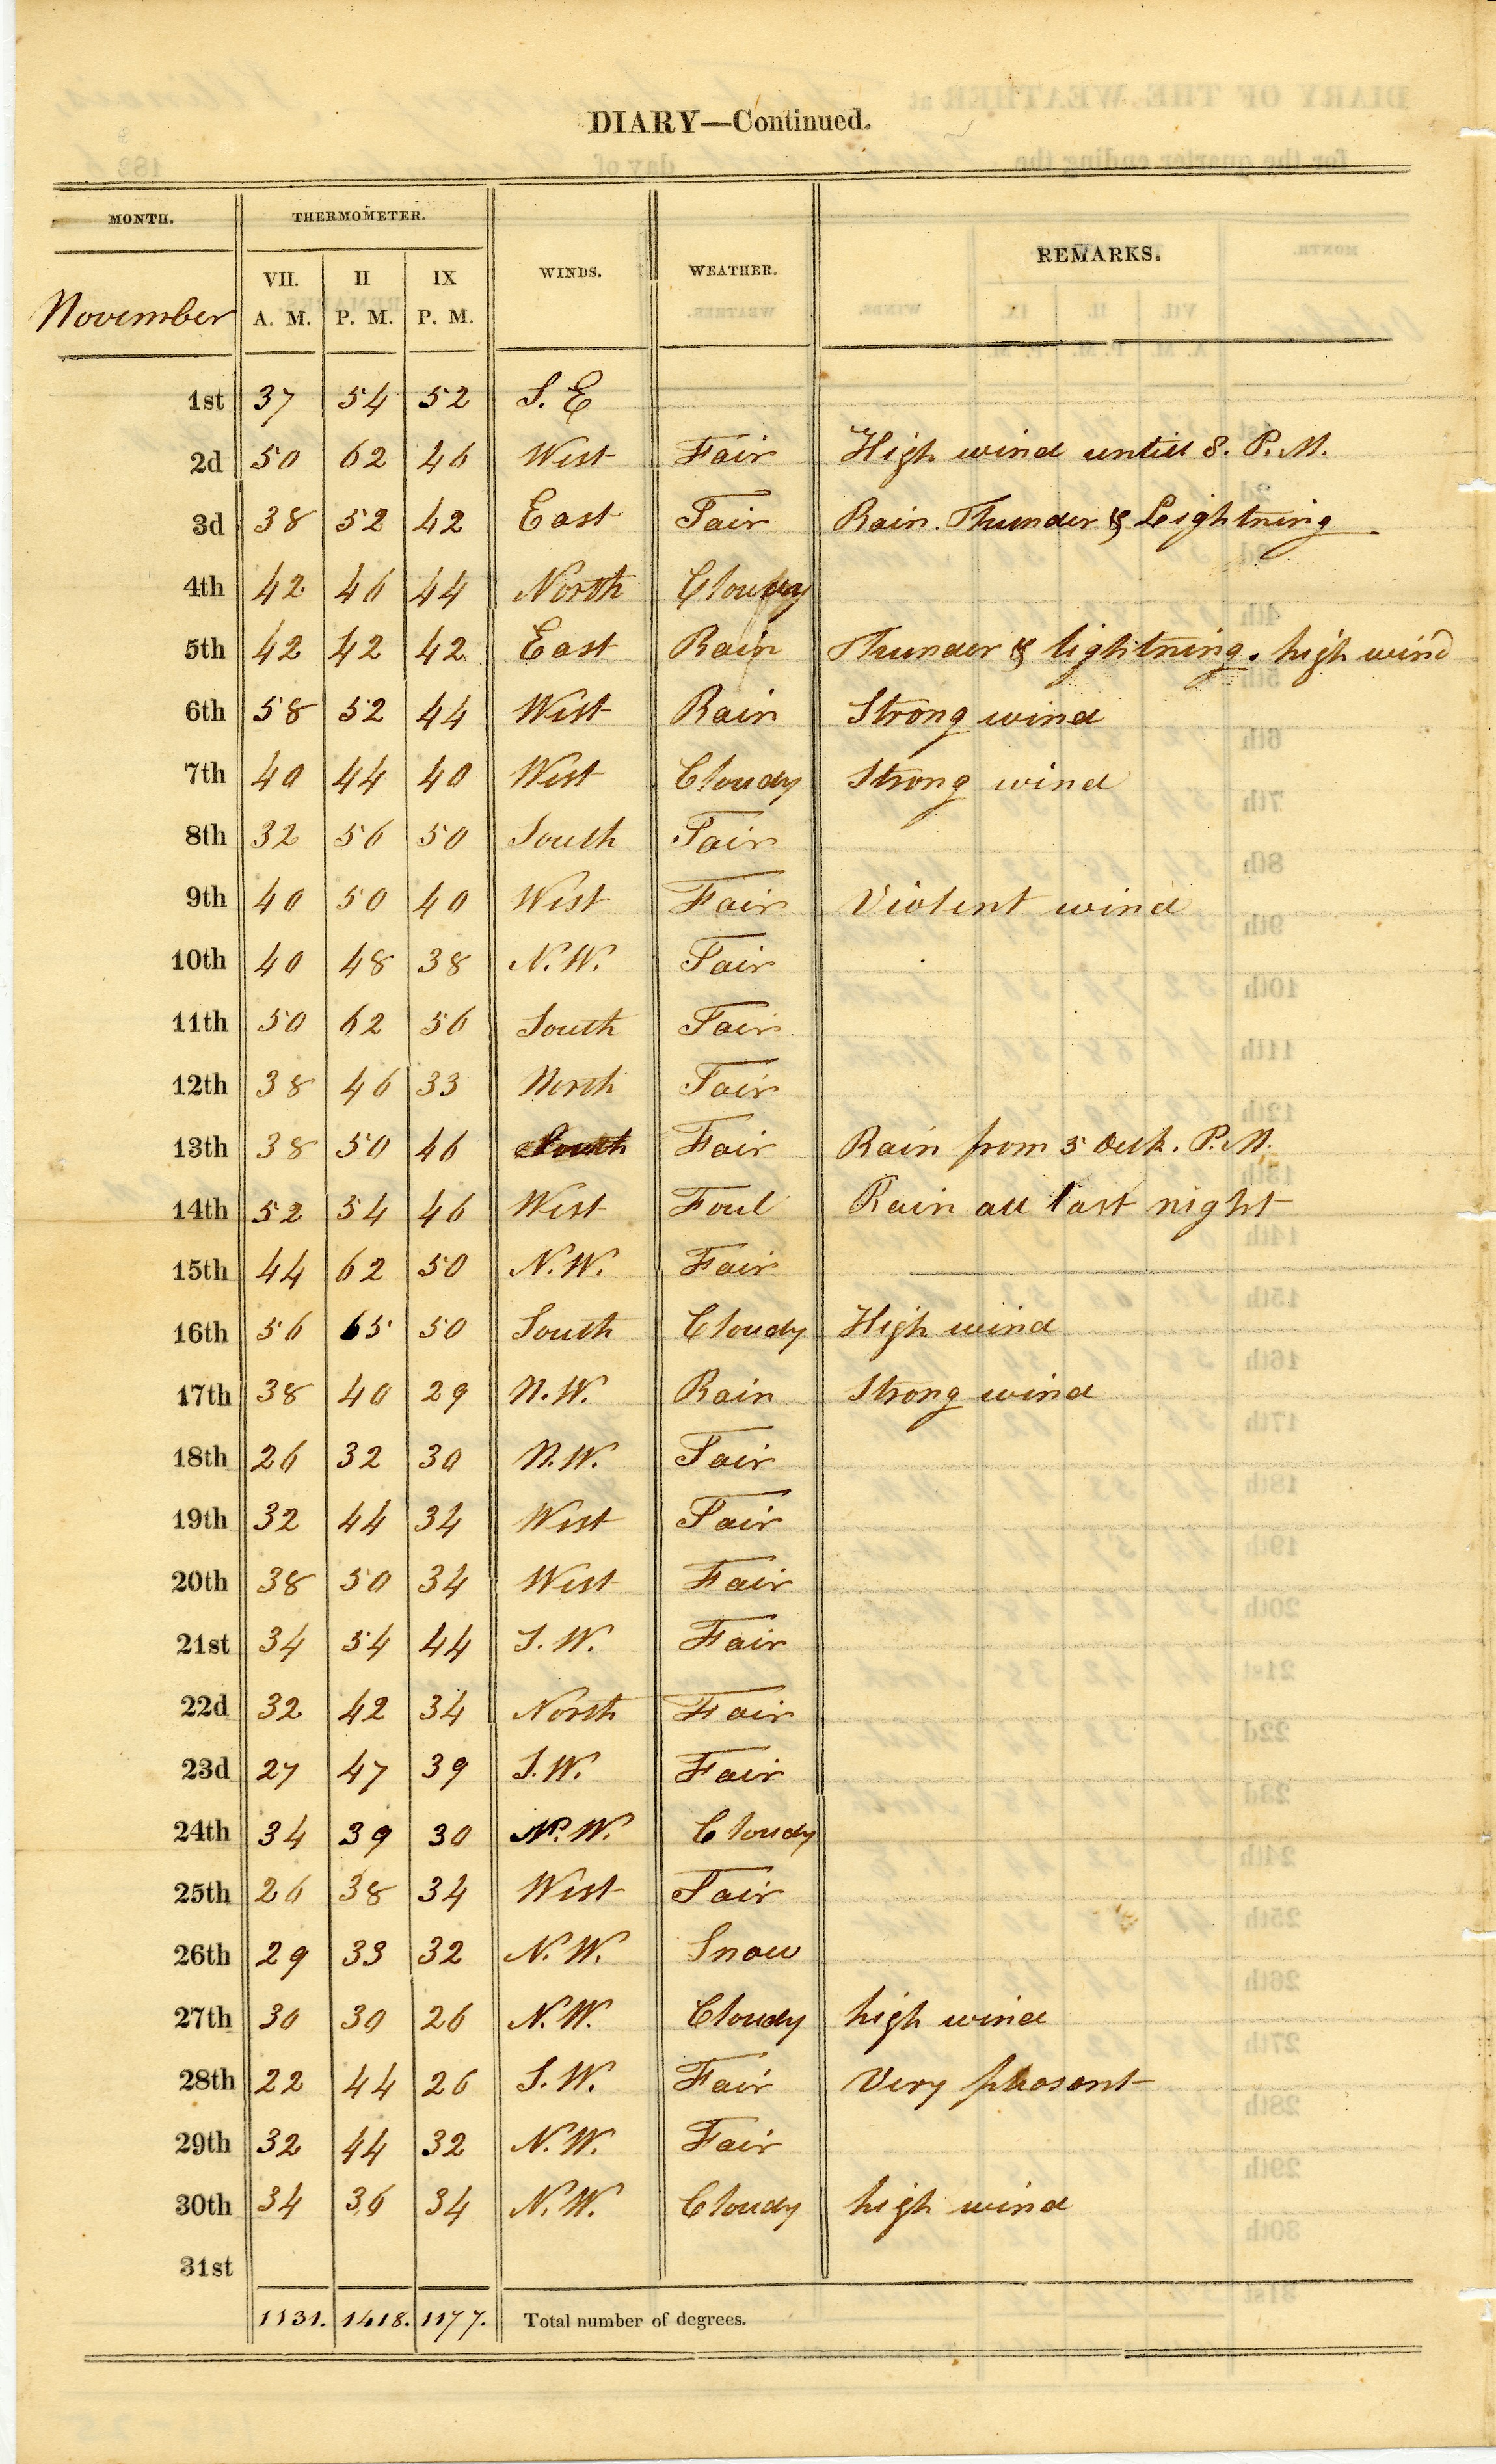 DIARY—Continued.
MONTH. THERMOMETER. WINDS. WEATHER. REMARKS.
November VII. A. M. II P. M. IX P. M.
1st 37 54 52 S. E
2d 50 62 46 West Fair High wind untill 8. P.M.
3d 38 52 42 East Fair Rain. Thunder & Leightning
4th 42 46 44 North Cloudy
5th 42 42 42 East Rain Thunder & lightning. high wind
6th 58 52 44 West Rain Strong wind
7th 40 44 40 West Cloudy Strong wind
8th 32 56 50 South Fair
9th 40 50 40 West Fair Violent wind
10th 40 48 38 N.W. Fair
11th 50 62 56 South Fair
12th 38 46 33 North Fair
13th 38 50 46 South Fair Rain from 5 P.M.
14th 52 54 46 West Foul Rain all last night
15th 44 62 50 N.W. Fair
16th 56 65 50 South Cloudy High wind
17th 38 40 29 N.W. Rain Strong wind
18th 26 32 30 N.W. Fair
19th 32 44 34 West Fair
20th 38 50 34 West Fair
21st 34 54 44 S.W. Fair
22d 32 42 34 North Fair
23d 27 47 39 S.W. Fair
24th 34 39 30 N.W. Cloudy
25th 26 38 34 West Fair
26th 29 33 32 N.W. Snow
27th 30 30 26 N.W. Cloudy high wind
28th 22 44 26 S.W. Fair Very pleasant
29th 32 44 32 N.W. Fair
30th 34 36 34 N.W. Cloudy high wind
31st
1131. 1418. 1177. Total number of degrees.